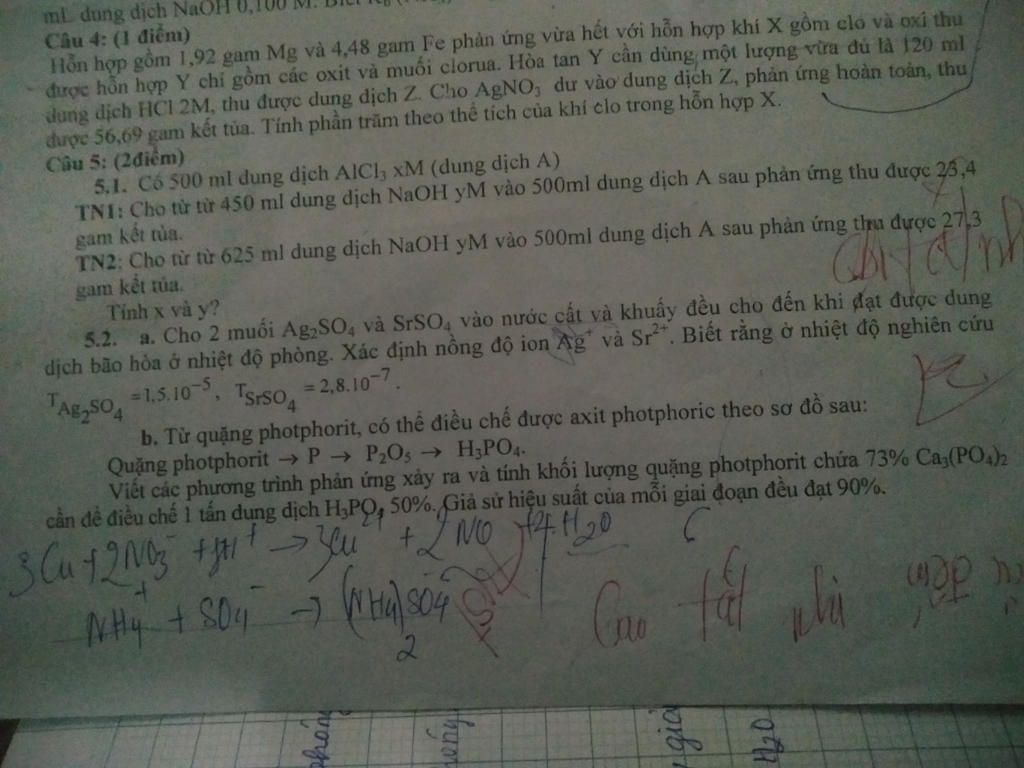 mL dung dịch NaOH 0,100 M. Biết
Câu 4: (1 điểm)
Hỗn hợp gồm 1,92 gam Mg và 4,48 gam Fe phản ứng vừa hết với hỗn hợp khí X gồm clo và oxi thu
được hỗn hợp Y chỉ gồm các oxit và muối clorua. Hòa tan Y cần dùng một lượng vừa đủ là 120 ml
dung dịch HCl 2M, thu được dung dịch Z. Cho AgNO₃ dư vào dung dịch Z, phản ứng hoàn toàn, thu
được 56,69 gam kết tủa. Tính phần trăm theo thể tích của khí clo trong hỗn hợp X.
Câu 5: (2điểm)
5.1. Có 500 ml dung dịch AlCl₃ xM (dung dịch A)
TN1: Cho từ từ 450 ml dung dịch NaOH yM vào 500ml dung dịch A sau phản ứng thu được 23,4
gam kết tủa.
TN2: Cho từ từ 625 ml dung dịch NaOH yM vào 500ml dung dịch A sau phản ứng thu được 27,3
gam kết tủa.
Tính x và y?
5.2. a. Cho 2 muối Ag₂SO₄ và SrSO₄ vào nước cất và khuấy đều cho đến khi đạt được dung
dịch bão hòa ở nhiệt độ phòng. Xác định nồng độ ion Ag⁺ và Sr²⁺. Biết rằng ở nhiệt độ nghiên cứu
T Ag₂SO₄ =1,5.10⁻⁵, T SrSO₄ = 2,8.10⁻⁷.
b. Từ quặng photphorit, có thể điều chế được axit photphoric theo sơ đồ sau:
Quặng photphorit → P → P₂O₅ → H₃PO₄.
Viết các phương trình phản ứng xảy ra và tính khối lượng quặng photphorit chứa 73% Ca₃(PO₄)₂
cần để điều chế 1 tấn dung dịch H₃PO₄ 50%. Giả sử hiệu suất của mỗi giai đoạn đều đạt 90%.
3Cu + 2NO₃⁻ + 8H⁺ → 3Cu²⁺ + 2NO + 4H₂O
NH₄⁺ + SO₄⁻ → (NH₄)₂SO₄
Cao tất nhì
H₂O